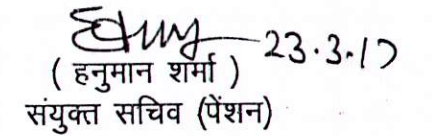 23.3.17
( हनुमान शर्मा )
संयुक्त सचिव (पेंशन)